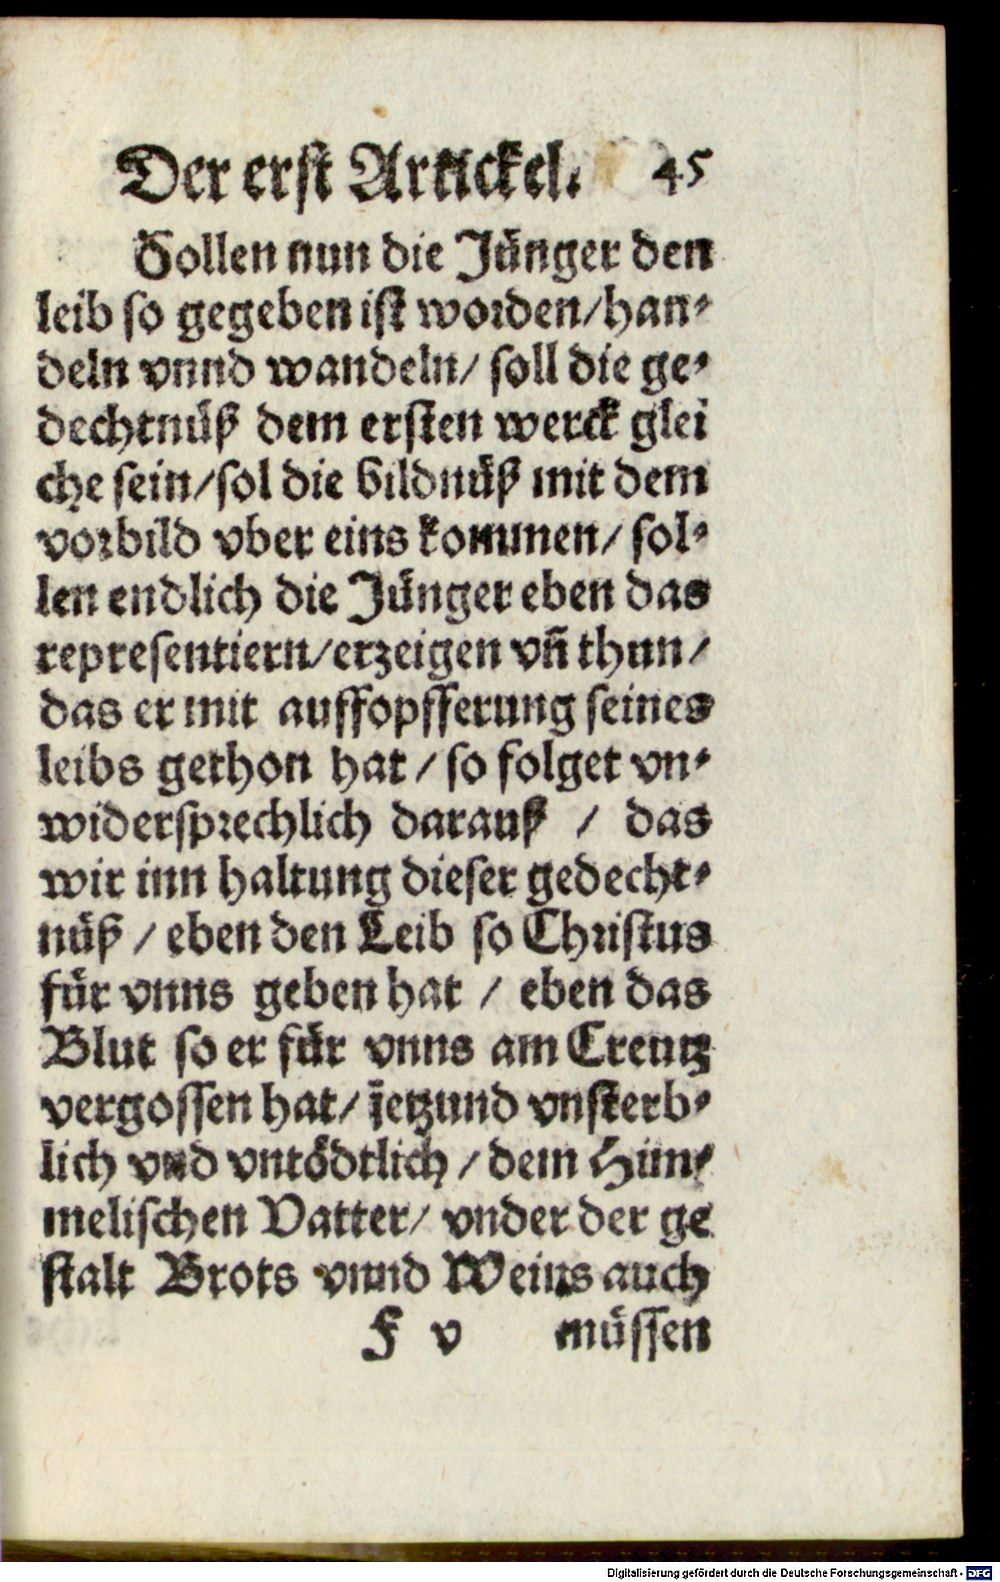 Der erst Artickel. 45
Sollen nun die Jünger den
leib so gegeben ist worden/han-
deln vnnd wandeln/ soll die ge-
dechtnüß dem ersten werck glei
che sein/sol die bildnüß mit dem
vorbild vber eins kommen/ sol-
len endlich die Jünger eben das
representiern/erzeigen vñ thun/
das er mit auffopfferung seines
leibs gethon hat / so folget vn-
widersprechlich darauß / das
wir inn haltung dieser gedecht-
nüß / eben den Leib so Christus
für vnns geben hat / eben das
Blut so er für vnns am Creutz
vergossen hat/ jetzund vnsterb-
lich vnd vntödtlich / dem Him-
melischen Vatter/ vnder der ge
stalt Brots vnnd Weins auch
F v müssen
Digitalisierung gefördert durch die Deutsche Forschungsgemeinschaft - DFG